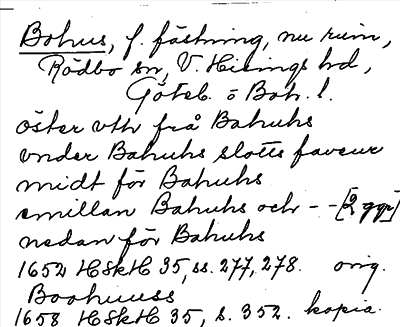 Bohus, f. fästning, nu ruin,
Rödbo sn, V. Hisings hd,
Göteb. o Boh. l.
öster vth frå Bahuhs
vnder Bahuhs slotts faveur
midt för Bahuhs
emillan Bahuhs och - - [2 ggr]
nedan för Bahuhs
1652 HSkH 35, ss. 277, 278. orig.
Boohuuss
1658 HSkH 35, s. 352. kopia.